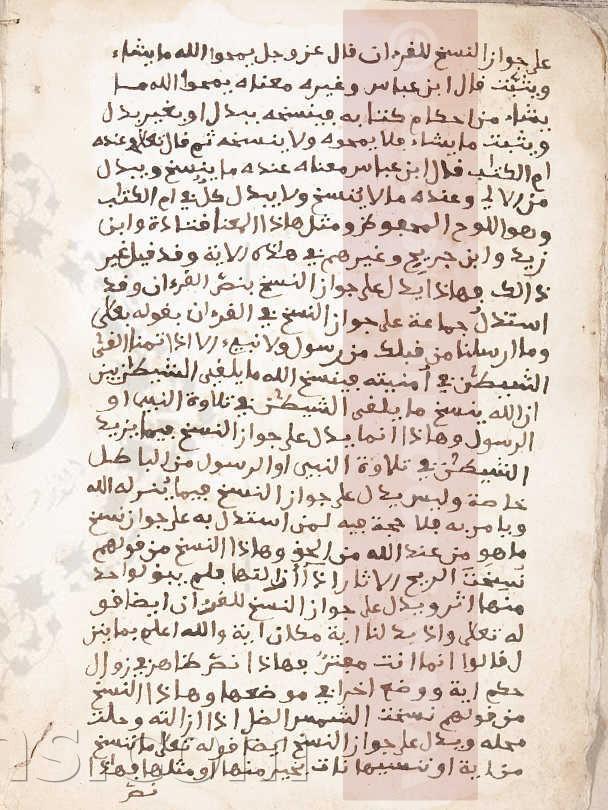 على جواز النسخ للقرءان قال عز وجل يمحوا الله ما يشاء
ويثبت قال ابن عباس وغيره معناه يمحوا الله مـا
يشاء من احكام كتابه فينسخه ببدل او بغير بدل
ويثبت ما يشاء فلا يمحوه ولا ينسخه ثم قال تعلى وعنده
ام الكتب قال ابن عباس معناه عنده ما ينسخ ويبدل
من الاي وعنده ما لا ينسخ ولا يبدل كل في ام الكتب
وهو اللوح المحفوظ ومثل هاذا المعنا قتادة وابن
زيد وابن جريج وغيرهم في هذه الاية وقد قيل غير
ذالك فهاذا يدل على جواز النسخ بنص القرءان وقد
استدل جماعة على جواز النسخ في القرءان بقوله تعلى
وما ارسلنا من قبلك من رسول ولا نبيء الا اذا تمنا القى
الشيطن في امنيته فينسخ الله ما يلقى الشيطن بين
ان الله ينسخ ما يلقى الشيطن في تلاوة النبي او
الرسول وهاذا انما يدل على جواز النسخ فيما يزيد
الشيطن في تلاوة النبي او الرسول من الباطل
خاصة وليس يدل على جواز النسخ فيما ينزله الله
ويامر به فلا حجة فيه لمن استدل به على جواز نسخ
ما هو من عند الله من الحق وهاذا النسخ من قولهم
نسخت الريح الاثار اذا ازالتها فلم يبق واحد
منها اثر ويدل على جواز النسخ للقرءان ايضا قو
له تعلى واذا بدلنا اية مكان اية والله اعلم بما ينز
ل قالوا انما انت مفتر فهاذا نص ظاهر في زوال
حكم اية ووضع اخرا في موضعها وهاذا النسخ
من قولهم نسخت الشمس الظل اذا ازالته وحلت
محله ويدل على جواز النسخ ايضا قوله تعلى ما ننسخ
من اية او ننسيها نات بخير منها او مثلها فهاذا
نص